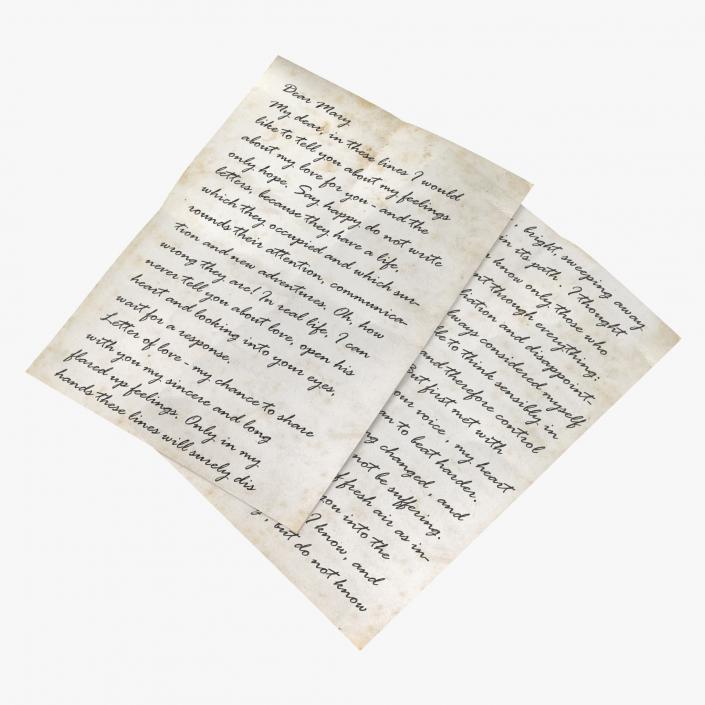 Dear Mary
My dear, in these lines I would
like to tell you about my feelings
about my love for you - and the
only hope. Say happy do not write
letters, because they have a life,
which they occupied and which sur-
rounds their attention, communica-
tion and new adventures. Oh, how
wrong they are! In real life, I can
never tell you about love, open his
heart and looking into your eyes,
wait for a response.
Letter of love - my chance to share
with you my sincere and long
flared up feelings. Only in my
hands these lines will surely dis
bright, sweeping away
in its path. I thought
know only those who
nt through everything:
iation and disappoint-
lways considered myself
le to think sensibly in
and therefore control
But first met with
our voice, my heart
an to beat harder.
ng changed, and
not be suffering.
f fresh air as in-
you into the
I know, and
, but do not know